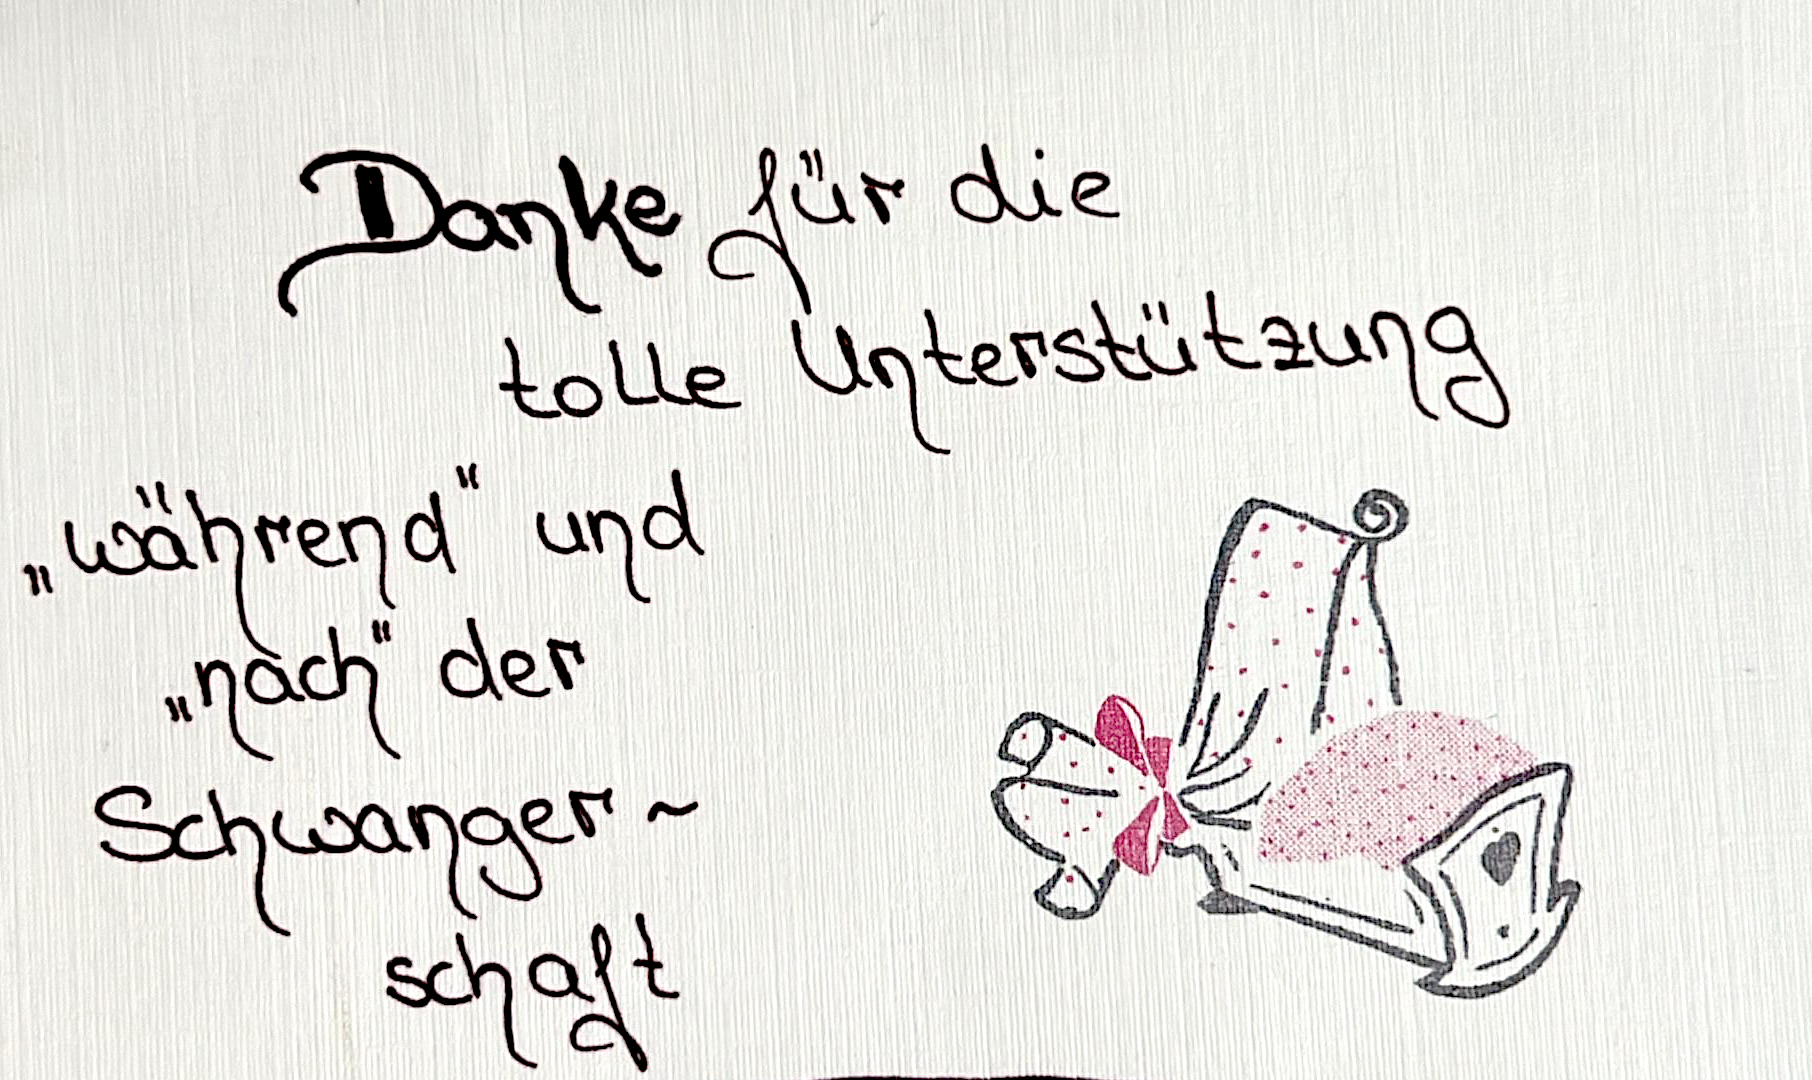 Danke für die
tolle Unterstützung
„während“ und
„nach“ der
Schwanger~
schaft